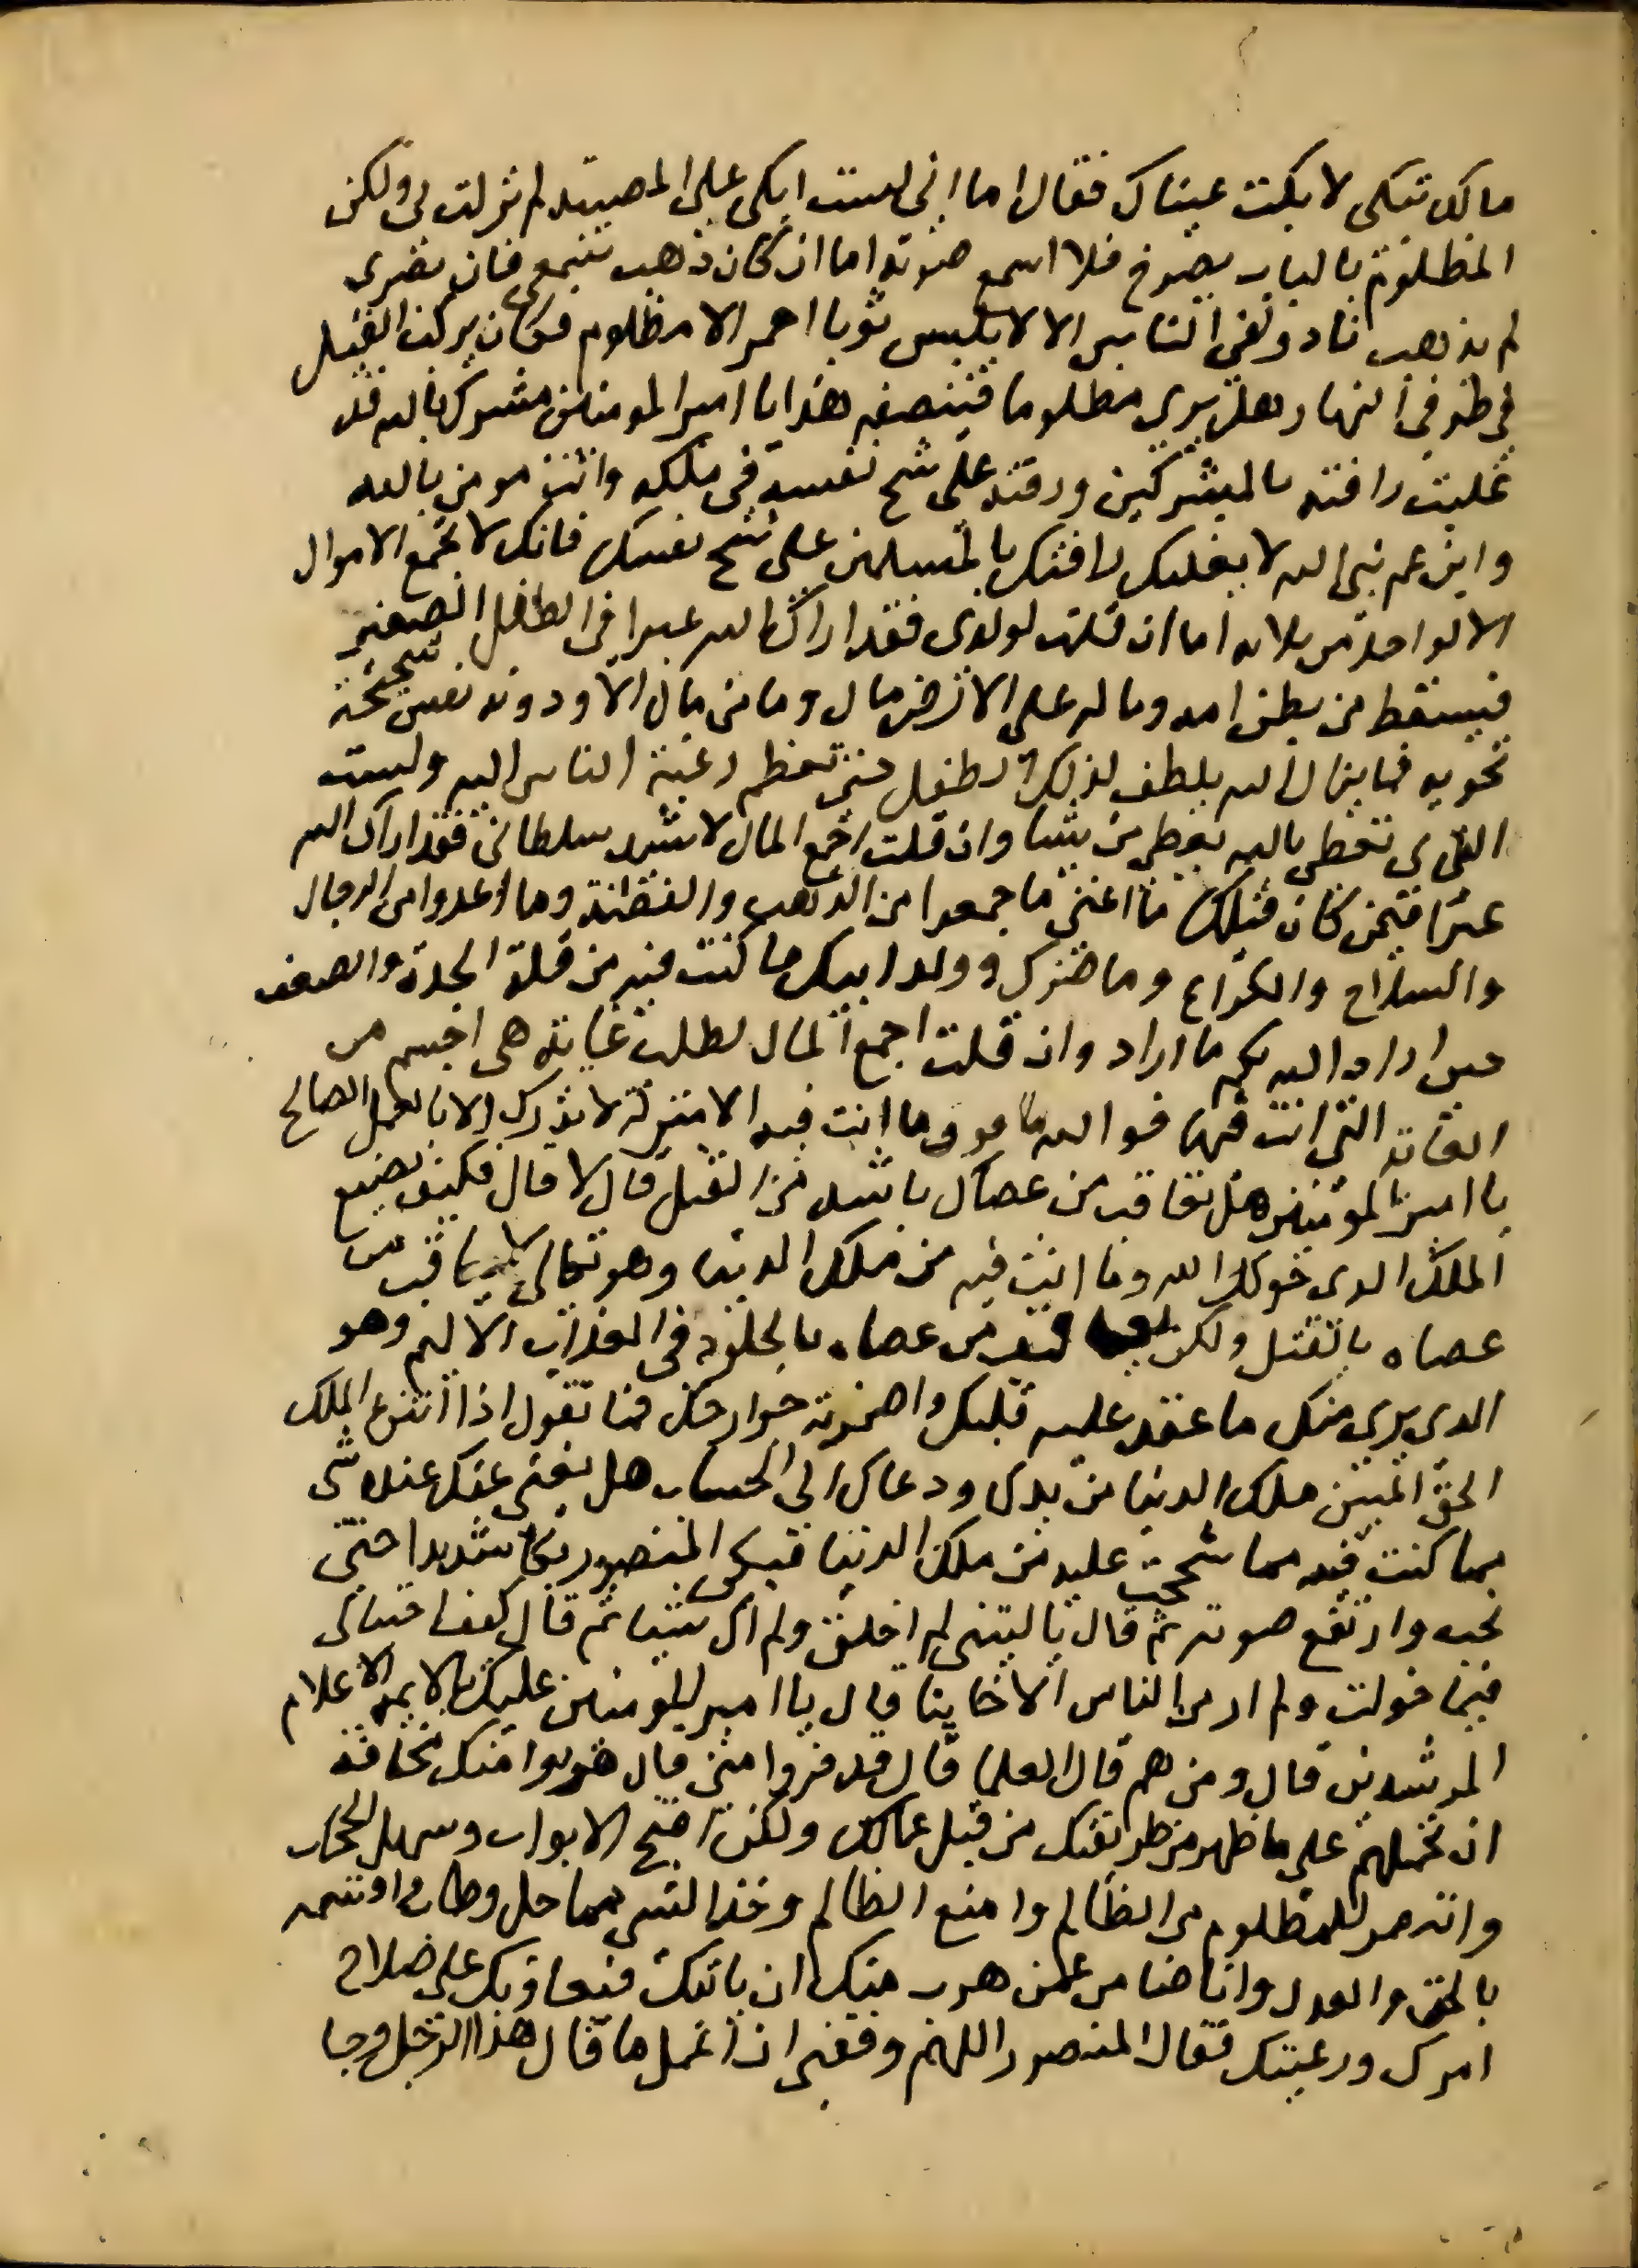 مالك تبكى لا بكت عيناك فقال اما انى لست ابكى على المصيبة لم نزلت بى ولكن
المظلوم بالباب يصرخ فلا اسمع صوته اما ان كان ذهب سمعى فان بصرى
لم يذهب نادوا فى الناس الا لا يلبس ثوبا احمر الا مظلوم فكان يركب الفيل
فى طرفى النهار هل يرى مظلوما فينصفه هذا يا امير المومنين مشرك بالله قد
غلبت رافته بالمشركين ورقته على شح نفسه فى ملكه وانت مومن بالله
وابن عم نبى الله لا يغلبك رافتك بالمسلمين على شح نفسك فانك لا تجمع الاموال
الا لواحد من ثلاثه اما ان قلت لولدى فقد اراك الله عبرا فى الطفل الصغير
فيسقط من بطن امه وماله على الارض مال وما من مال الا ودونه نفس شحيحة
تحويه فما يزال الله يلطف لذلك الطفل حتى تعظم رغبة الناس اليه ولست
الذى تعطى بالله يعطى من يشا وان قلت اجمع المال لاشد سلطانى فقد اراك الله
عبرا فيمن كان قبلك ما اغنى ما جمعوا من الذهب والفضة وما اعدوا من الرجال
والسلاح والكراع وما ضرك وولد ابيك ما كنت فيه من قلة الجدة والضعف
حين اراد الله بكم ما اراد وان قلت اجمع المال لطلب غاية هى اجسم من
الغاية التى انت فيها فوالله ما فوق ما انت فيه الا منزلة لا تدرك الا بالعمل الصالح
يا امير المومنين هل تعاقب من عصاك باشد من القتل قال لا قال فكيف تصنع
الملك الذى خولك الله وما انت فيه من ملك الدنيا وهو تعالى لا يعاقب من
عصاه بالقتل ولكن يعاقب من عصاه بالخلود فى العذاب الاليم وهو
الذى يرى منك ما عقد عليه قلبك واضمرته جوارحك فما تقول اذا انتزع الملك
الحق المبين ملك الدنيا من يدك ودعاك الى الحساب هل يغنى عنك عنده شى
مما كنت فيه مما شححت عليه من ملك الدنيا فبكى المنصور بكا شديدا حتى
نحب وارتفع صوته ثم قال يا ليتنى لم اخلق ولم اك شيئا ثم قال كيف احتيالى
فيما خولت ولم ار من الناس الا خاينا قال يا امير المومنين عليك بالايمة الاعلام
المرشدين قال ومن هم قال العلما قال قد فروا منى قال هربوا منك مخافة
ان تحملهم على ما ظهر من طريقتك من قبل عمالك ولكن افتح الابواب وسهل الحجاب
وانتصر للمظلوم من الظالم وامنع الظالم وخذ الشى مما حل وطاب واقسمه
بالحق والعدل وانا ضامن عمن هرب منك ان ياتك فيعاونك على صلاح
امرك ورعيتك فقال المنصور اللهم وفقنى ان اعمل ما قال هذا الرجل وجا